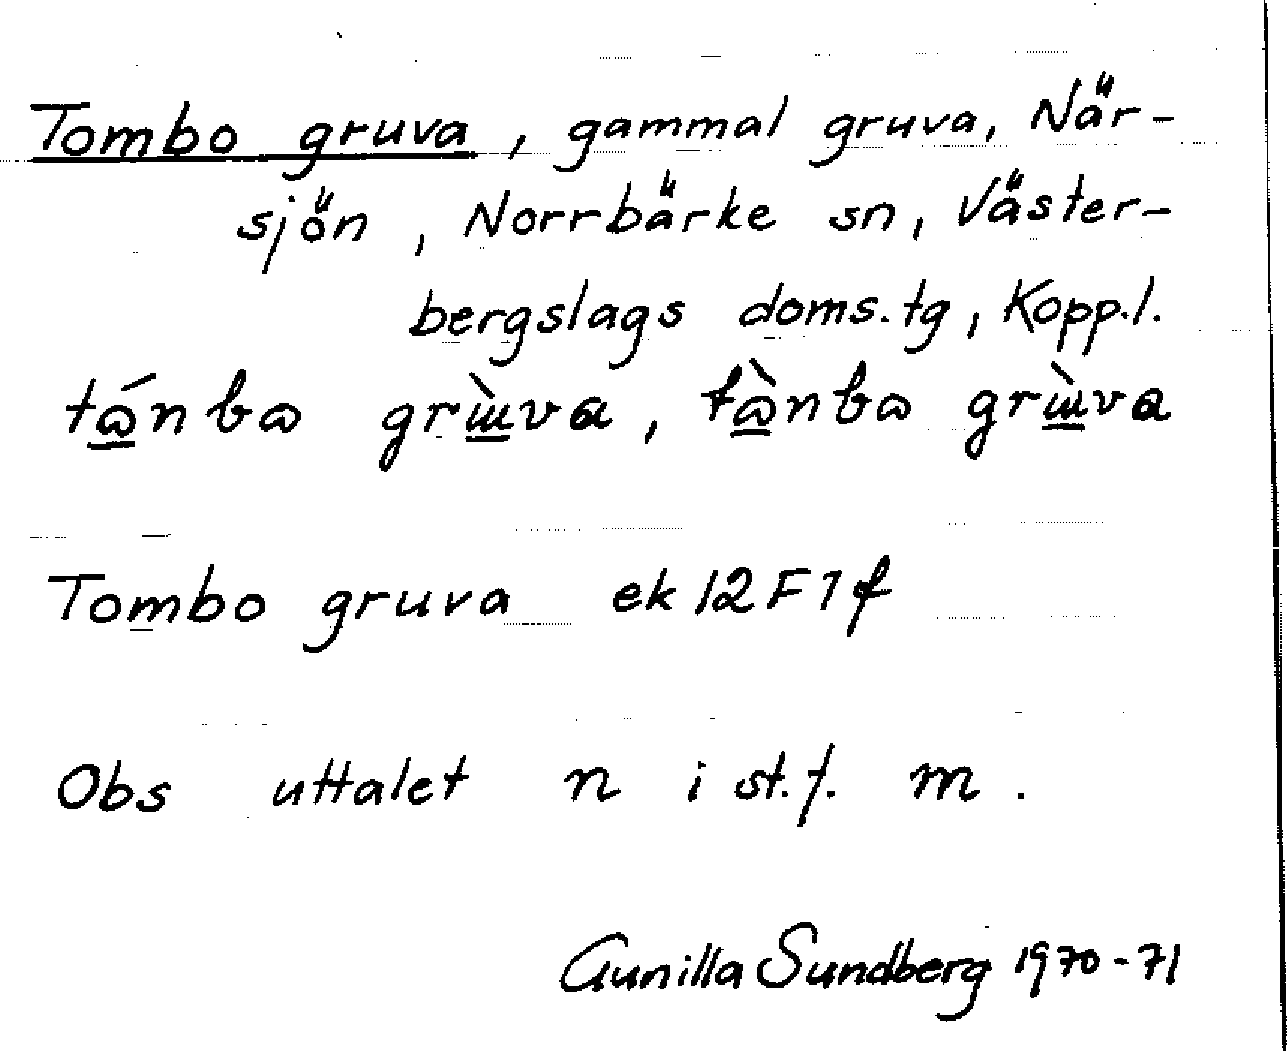 Tombo gruva, gammal gruva, När-
sjön, Norrbärke sn, Väster-
bergslags doms.tg, Kopp.l.
tɷ̲́nbɷ grɯ̲̀va, tɷ̲̀nbɷ grɯ̲̀va
Tombo gruva ek 12F1f
Obs uttalet n i st.f. m.
Gunilla Sundberg 1970-71